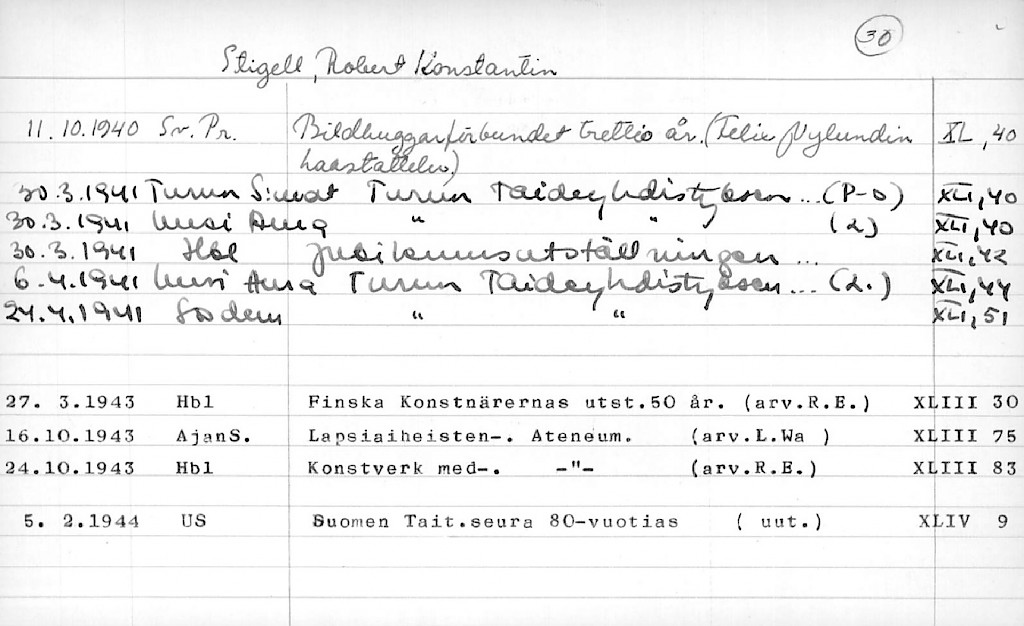 30
Stigell, Robert Konstantin
11.10.1940 Sv. Pr. Bildhuggarförbundet trettio år. (Felix Nylundin XL, 40
haastattelu)
30.3.1941 Turun S:mat Turun Taideyhdistyksen... (P-o) XLI, 40
30.3.1941 Uusi Aura " " (2) XLI, 40
30.3.1941 Hbl Jubileumsutställningen ... XLI, 42
6.4.1941 Uusi Aura Turun Taideyhdistyksen... (2.) XLI, 44
24.4.1941 Sosdem " " XLI, 51
27. 3.1943 Hbl Finska Konstnärernas utst.50 år. (arv.R.E.) XLIII 30
16.10.1943 AjanS. Lapsiaiheisten-. Ateneum. (arv.L.Wa ) XLIII 75
24.10.1943 Hbl Konstverk med-. -"- (arv.R.E.) XLIII 83
5. 2.1944 US Suomen Tait.seura 80-vuotias ( uut.) XLIV 9